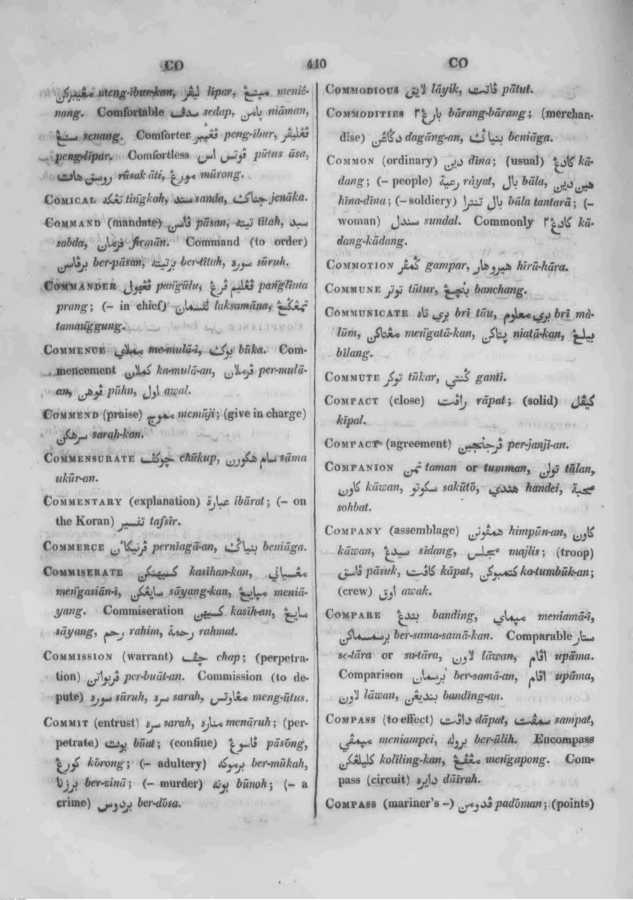 CO 410 CO
مڠيبركن meng-ibur-kan, ليڤر lipar, منيڠ menié-
nang. Comfortable سدف sedap, نيامن niāman,
سنڠ senang. Comforter ڤڠيبر peng-ibur, ڤڠليڤر
peng-lipar. Comfortless ڤوتس اس pūtus āsa,
روسق هات rūsak āti, مورڠ mūrong.
COMICAL تڠكه tingkah, سند sanda, جناك jenāka.
COMMAND (mandate) ڤاسن pāsan, تيته tītah, سبد
sabda, فرمان firmān. Command (to order)
برڤاسن ber-pāsan, برتيته ber-tītah, سوره sūruh.
COMMANDER ڤڠهولو pangūlu, ڤڠليم ڤرڠ panglīma
prang; (– in chief) لقسمان laksamāna, تمڠڬڠ
tamanggung.
COMMENCE ممولاي me-mulā-i, بوك būka. Com-
mencement كملان ka-mulā-an, ڤرملان per-mulā-
an, ڤوهن pūhn, اول awal.
COMMEND (praise) مموج memūji; (give in charge)
سرهكن sarah-kan.
COMMENSURATE چوكڤ chūkup, سام هكورن sāma
ukūr-an.
COMMENTARY (explanation) عبارة ibārat; (– on
the Koran) تفسير tafsīr.
COMMERCE ڤرنيڬان perniagā-an, بنياڬ beniāga.
COMMISERATE كسيهنكن kasīhan-kan, مڠسياني
mengasiān-i, سايڠكن sāyang-kan, مڽايڠ meniā-
yang. Commiseration كسيهن kasīh-an, سايڠ
sāyang, رحم rahim, رحمة rahmat.
COMMISSION (warrant) چڤ chap; (perpetra-
tion) ڤربواتن per-buāt-an. Commission (to de-
pute) سوره sūruh, سره sarah, مڠاوتس meng-ūtus.
COMMIT (entrust) سره sarah, مناره menāruh; (per-
petrate) بوت būat; (confine) ڤاسوڠ pāsōng,
كورڠ kōrong; (– adultery) برموكه ber-mūkah,
برزنا ber-zinā; (– murder) بونه būnoh; (– a
crime) بردوس ber-dōsa.
COMMODIOUS لايق lāyik, ڤاتت pātut.
COMMODITIES بارڠ٢ bārang-bārang; (merchan-
dise) داڬاڠن dagāng-an, بنياڬ beniāga.
COMMON (ordinary) دين dīna; (usual) كادڠ kā-
dang; (– people) رعية rāyat, بال bāla, هين دين
hīna-dīna; (– soldiery) بال تنترا bāla tantarā; (–
woman) سندل sundal. Commonly كادڠ٢ kā-
dang-kādang.
COMMOTION ڬمڤر gampar, هيروهار hīrū-hāra.
COMMUNE توتر tūtur, بنچڠ banchang.
COMMUNICATE بري تاه brī tāu, بري معلوم brī mā-
lūm, مڠتاكن mengatā-kan, ڽتاكن niatā-kan, بيلڠ
bīlang.
COMMUTE توكر tūkar, ڬنتي ganti.
COMPACT (close) راڤت rāpat; (solid) كيڤل
kīpal.
COMPACT (agreement) ڤرجنجين per-janjī-an.
COMPANION تمن taman or tumman, تولن tūlan,
كاون kāwan, سكوتو sakūtō, هندي handei, صحبة
sohbat.
COMPANY (assemblage) همڤونن himpūn-an, كاون
kāwan, سيدڠ sīdang, مجلس majlis; (troop)
ڤاسق pāsuk, كاڤت kāpat, كتمبوكن ka-tumbūk-an;
(crew) اوق awak.
COMPARE بندڠ banding, ميماي meniamā-i,
برسمسماكن ber-sama-samā-kan. Comparable ستار
se-tāra or su-tāra, لاون lāwan, اڤام upāma.
Comparison برسمان ber-samā-an, اڤام upāma,
لاون lāwan, بنديڠن banding-an.
COMPASS (to effect) داڤت dāpat, سمڤت sampat,
ميمڤي meniampei, بروله ber-ūlih. Encompass
كليلڠكن koliling-kan, مڠڤڠ mengapong. Com-
pass (circuit) دايره dāïrah.
COMPASS (mariner's –) ڤدومن padōman; (points)